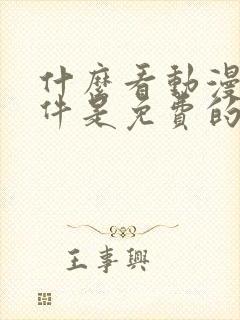 什麼看動漫
件是免費的
王事興